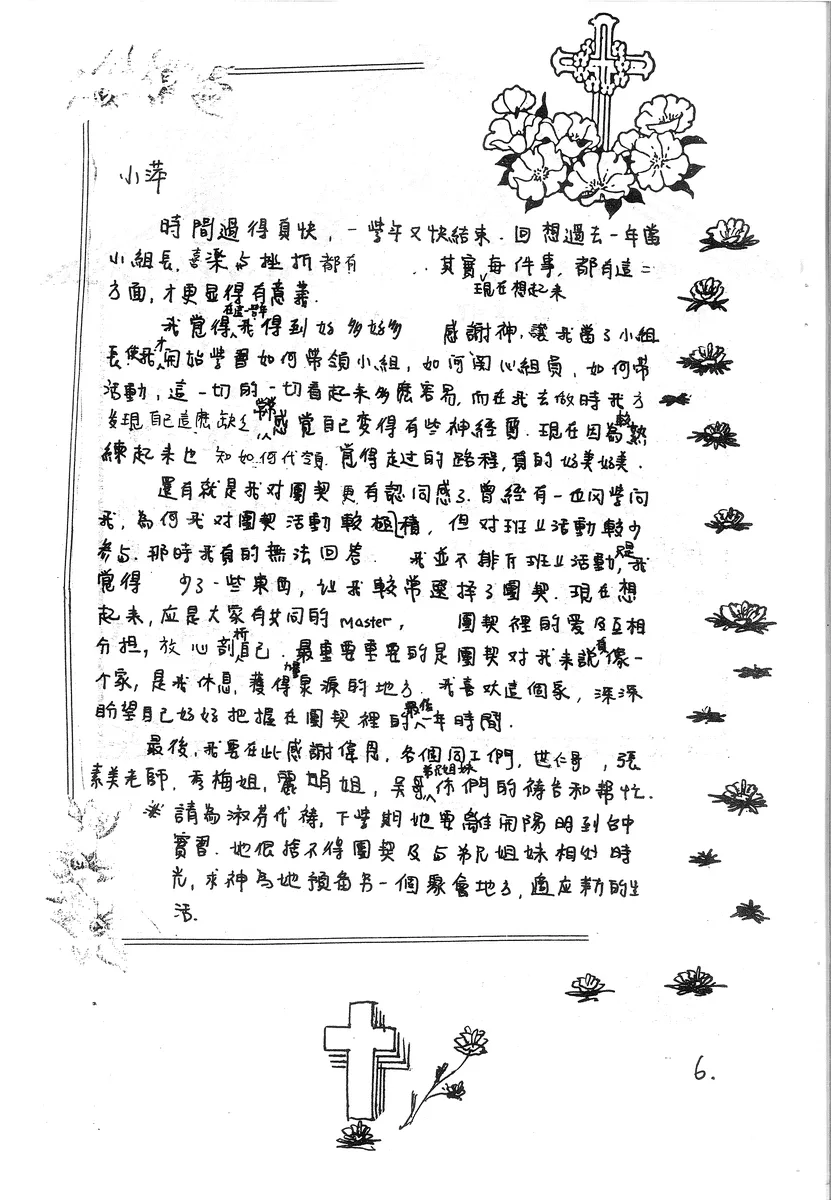 小萍
時間過得真快，一學年又快結束．回想過去一年當
小組長，喜樂与挫折都有．．其實現在想起來每件事，都有這二
方面，才更显得有意義．
我覺得在這一學年我得到好多好多 感謝神，讓我當了小組
長，使我才開始學習如何帶領小組，如何関心組員，如何帶
活動，這一切的一切看起來多麼容易，而在我去做時我方
发現自己這麼缺乏，常常感覺自己変得有些神経質．現在因為較熟
練起來也 知如何代領．覺得走过的路程，真的好美好美．
還有就是我对團契更有認同感了．曾經有一位同學問
我，為何我对團契活動較極積，但对班上活動較少
参与．那時我真的無法回答． 我並不排斥班上活動，只是我
覺得 少了一些東西，让我較常選择了團契．現在想
起來，应是大家有共同的master， 團契裡的爱及互相
分担，放心剖析自己．最重要重要的是團契对我來說真像一
个家，是我休息，獲得力量泉源的地方．我喜欢這個家，深深
盼望自己好好把握在團契裡的最后一年時間．
最後，我要在此感謝偉恩，各個同工們，世仁哥，張
素美老師，秀梅姐，麗娟姐，吳哥，弟兄姐妹你們的禱告和幫忙．
※ 請為淑芬代禱，下學期她要離開陽明到台中
實習．她很捨不得團契及与弟兄姐妹相处時
光，求神為她預备另一個聚會地方，適应新的生
活．
6．